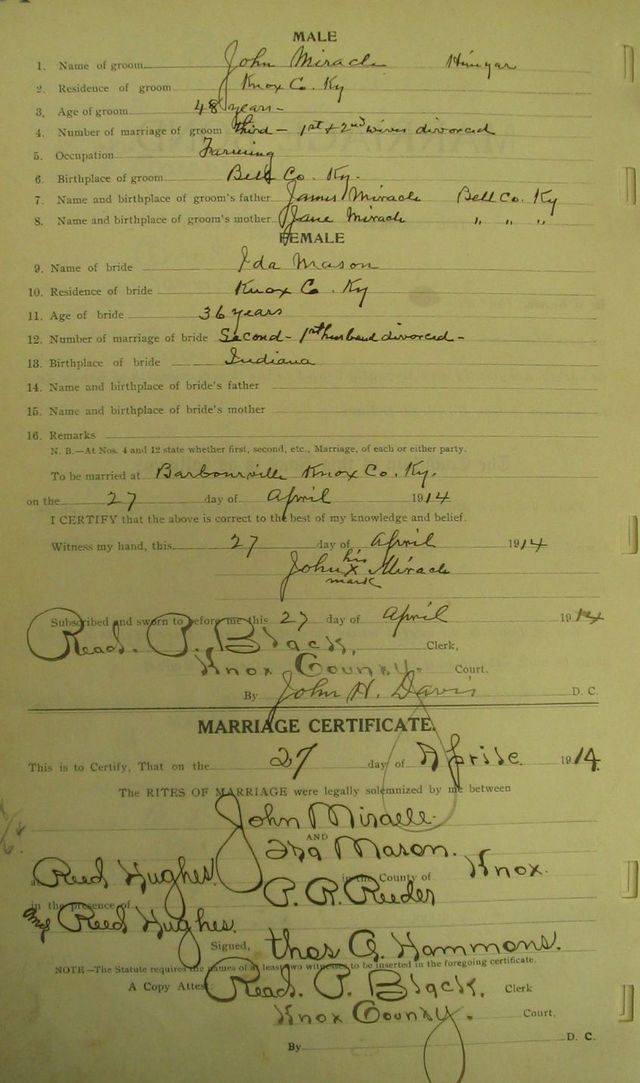 MALE
1. Name of groom John Miracle
2. Residence of groom Knox Co. Ky
3. Age of groom 48 years -
4. Number of marriage of groom third - 1st + 2nd wives divorced
5. Occupation Farming
6. Birthplace of groom Bell Co. Ky.
7. Name and birthplace of groom's father James Miracle Bell Co. Ky
8. Name and birthplace of groom's mother Jane Miracle " " "
FEMALE
9. Name of bride Ida Mason
10. Residence of bride Knox Co. Ky
11. Age of bride 36 years
12. Number of marriage of bride Second - 1st husband divorced -
13. Birthplace of bride Indiana
14. Name and birthplace of bride's father
15. Name and birthplace of bride's mother
16. Remarks
N. B.—At Nos. 4 and 12 state whether first, second, etc., Marriage, of each or either party.
To be married at Barbourville Knox Co. Ky.
on the 27 day of April 1914
I CERTIFY that the above is correct to the best of my knowledge and belief.
Witness my hand, this 27 day of April 1914
John his x mark Miracle
Subscribed and sworn to before me this 27 day of April 1914
Read. P. Black, Clerk,
Knox County. Court.
By John H. Davis D. C.
MARRIAGE CERTIFICATE.
This is to Certify, That on the 27 day of Aprile. 1914.
The RITES OF MARRIAGE were legally solemnized by me between
John Miracle.
AND
Ida Mason.
Reed Hughes. in the County of Knox.
in the presence of P. R. Reeder
Reed Hughes.
Signed, Thos G. Hammons.
NOTE—The Statute requires the names of at least two witnesses to be inserted in the foregoing certificate.
A Copy Attest: Read. P. Black, Clerk
Knox County. Court,
By D. C.